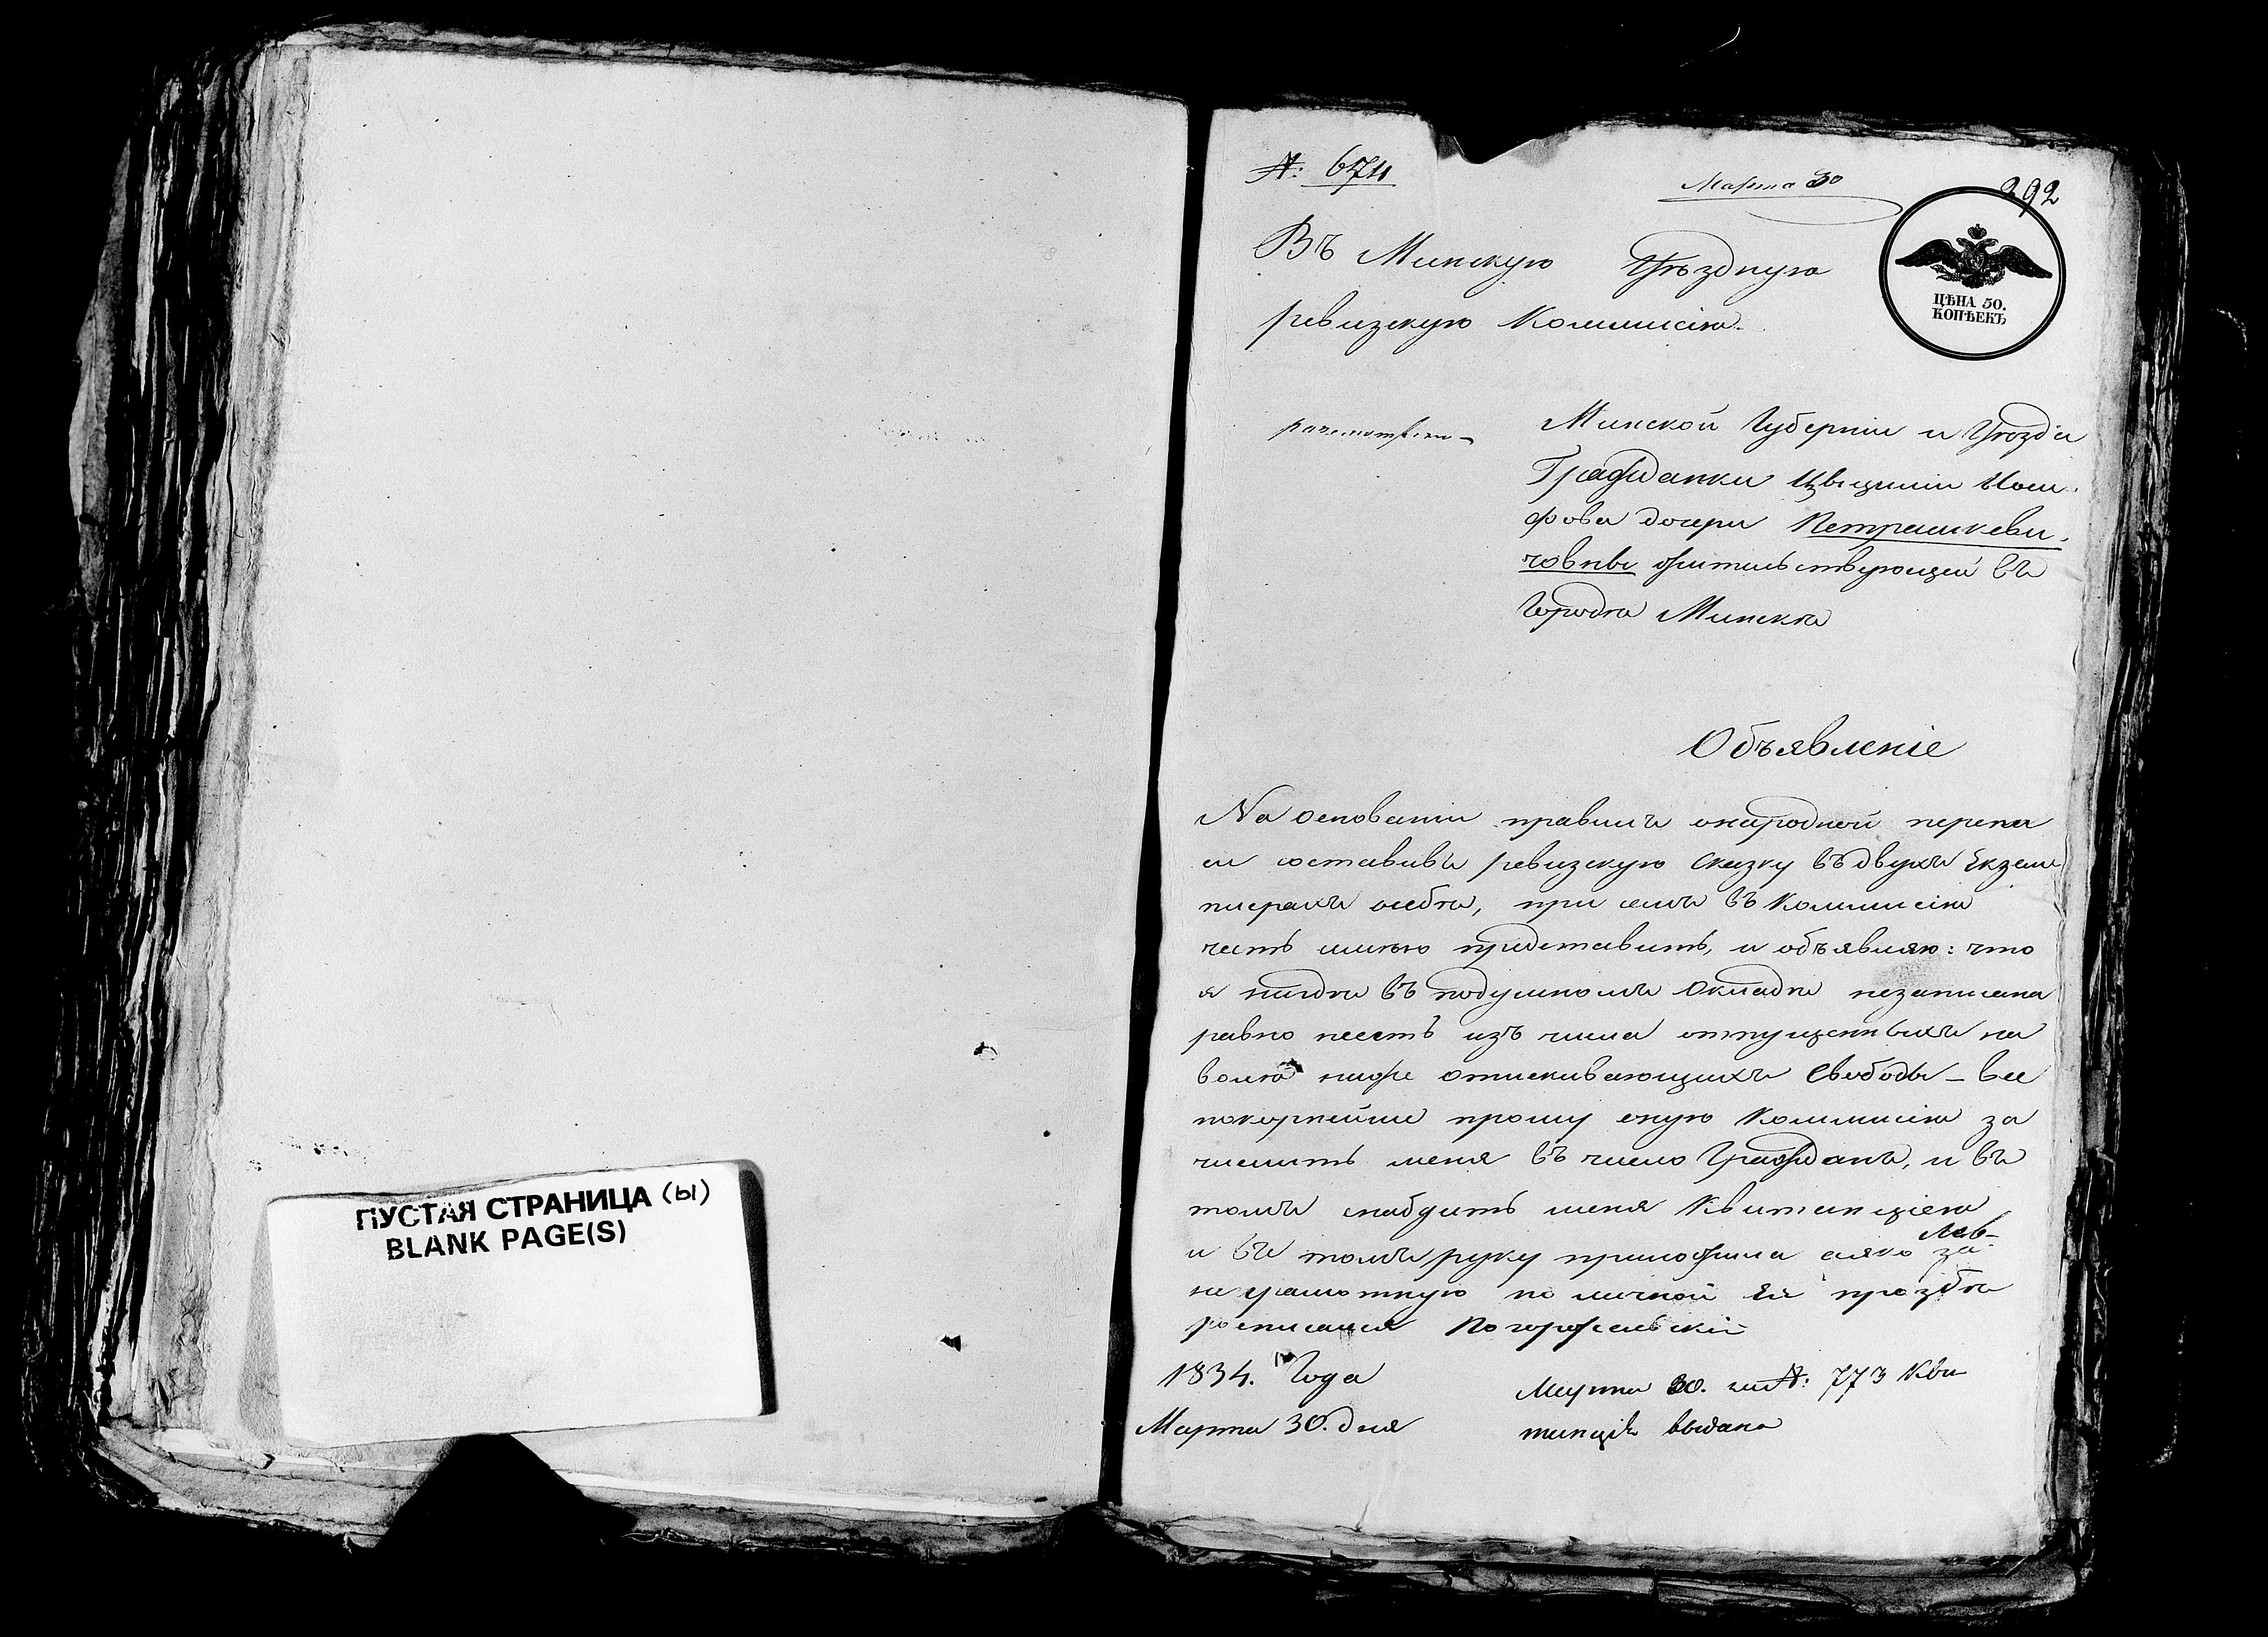 ПУСТАЯ СТРАНИЦА (ы)
BLANK PAGE(S)
№: 674
Марта 30
392
Въ Минскую Уѣздную
ревизскую Коммисію.
ЦѢНА 50.
КОПѢЕКЪ
разсмотрено
Минской Губерніи и Уѣзда
Гражданки Цыциліи Іоси-
фова дочери Петрашкеви-
човны жительствующей въ
Городѣ Минскѣ
Объявленіе
На основаніи правилъ онародной перепи
си составивъ ревизскую сказку въ двухъ Екзем
плерахъ особѣ, при семъ въ Коммисію
честь имѣю представить, и объявляю: что
я нигдѣ въ подушномъ Окладѣ незаписана
равно неесть изъ числа отпущенныхъ на
волю ниже отискивающихъ Свободы – все
покорнѣйше прошу оную Коммисію за
числить меня въ число Гражданъ, и въ
томъ снабдить меня Квитанціею
и въ томъ руку приложила аяко за
неграмотную по личной Ея прозбѣ
росписался Погоржельскій
1834. Года
Марта 30. дня
Марта 30. №: 773 Кви
танція выдана